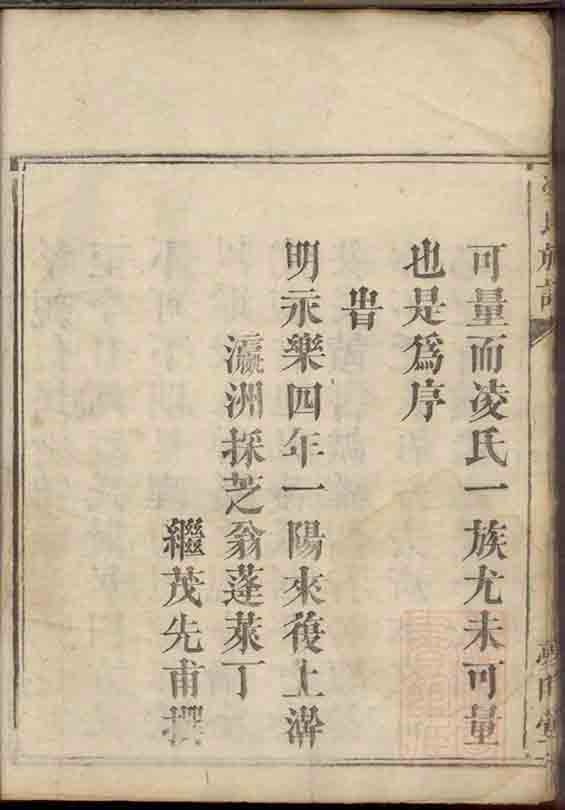 可量而凌氏一族尤未可量
也是爲序
旹
明永樂四年一陽來復上澣
瀛洲採芝翁蓬萊丁
繼茂先甫撰
氏族